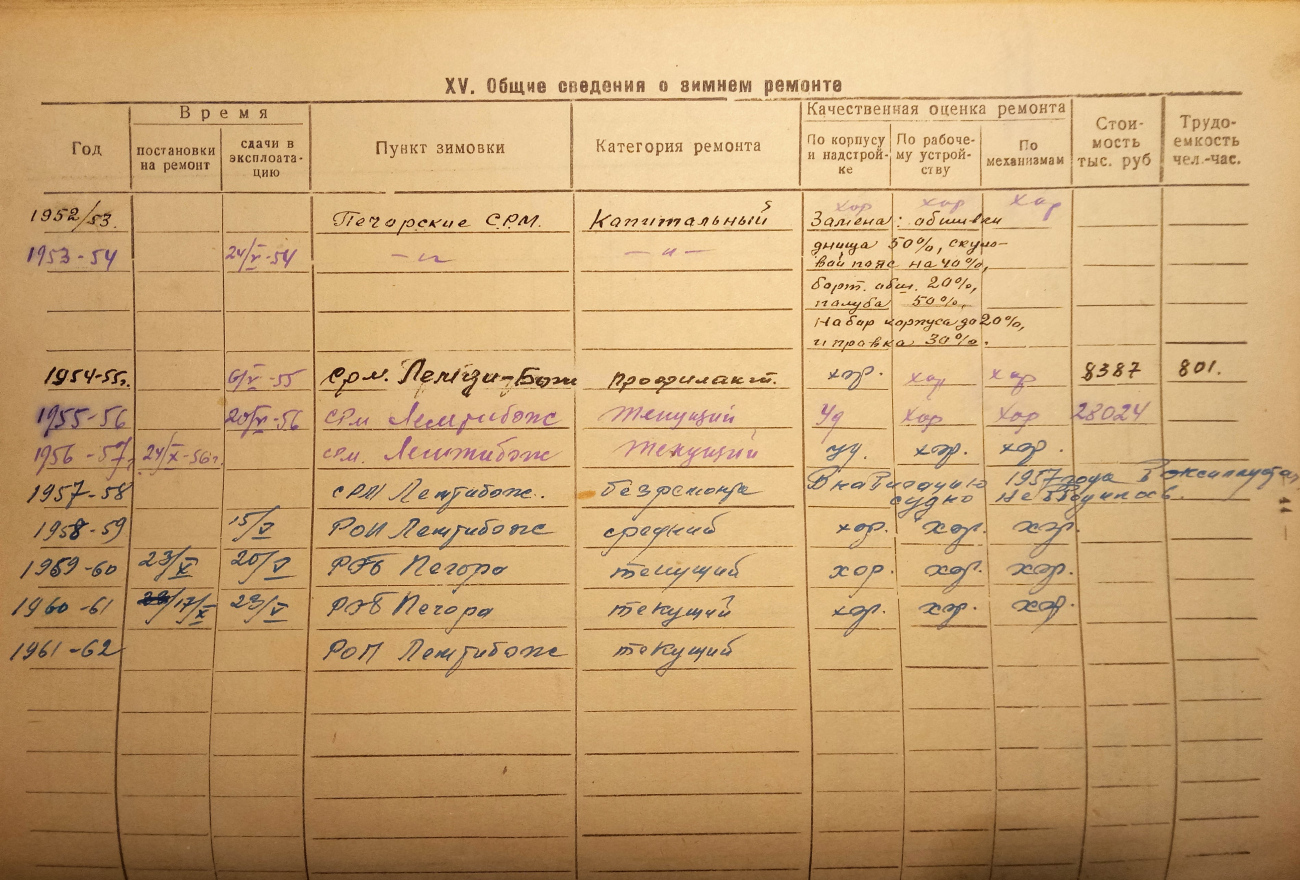 XV. Общие сведения о зимнем ремонте
Год
Время
постановки на ремонт
сдачи в эксплоата-
цию
Пункт зимовки
Категория ремонта
Качественная оценка ремонта
По корпусу и надстрой-
ке
По рабоче-
му устрой-
ству
По механизмам
Стои-
мость тыс. руб
Трудо-
емкость чел.-час.
хор хор хор
1952/53. Печорские С.Р.М. Капитальный Замена: обшивки
днища 50%, скуло-
1953-54 24/V-54 —〃— —〃— вой пояс на 40%,
борт. обш. 20%,
палуба 50%,
Набор корпуса до 20%,
и правка 30%.
1954-55г. 6/V-55 Срм. Бож Профилакт. хор. хор хор 8387 801.
1955-56 20/VI-56 СРМ Лемтибож Текущий Уд хор хор 28024
1956-57г 24/X-56г. СРМ. Лемтибож Текущий уд. хор. хор.
1957-58 СРМ Лемтибож. без ремонта В навигацию 1957 года В
судно не вводилось.
1958-59 15/V РОП Лемтибож средний хор. хор. хор.
1959-60 23/X 20/V РЭБ Печора текущий хор. хор. хор.
1960-61 17/X 23/V РЭБ Печора текущий хор. хор. хор.
1961-62 РОП Лемтибож текущий
44 —